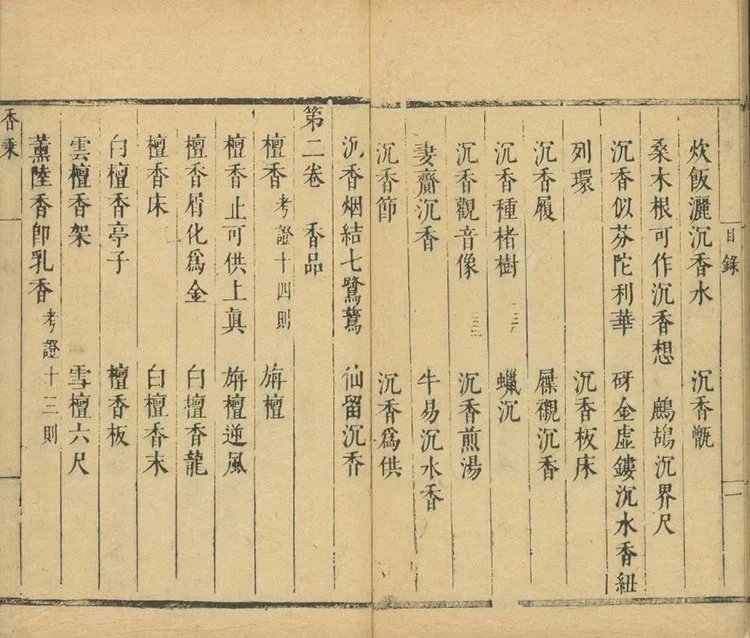 目錄
一
炊飯灑沉香水 沉香甑
桑木根可作沉香想 鷓鴣沉界尺
沉香似芬陀利華 砑金虛鏤沉水香紐
列環 沉香板床
沉香履 屧襯沉香
沉香種楮樹 二 蠟沉
沉香觀音像 三 沉香煎湯
妻齎沉香 牛易沉水香
沉香節 沉香爲供
沉香烟結七鷺鷥 仙留沉香
第二卷 香品
檀香 考證十四則 旃檀
檀香止可供上真 旃檀逆風
檀香屑化爲金 白檀香龍
檀香床 白檀香末
白檀香亭子 檀香板
雲檀香架 雪檀六尺
薰陸香卽乳香 考證十三則
香乘